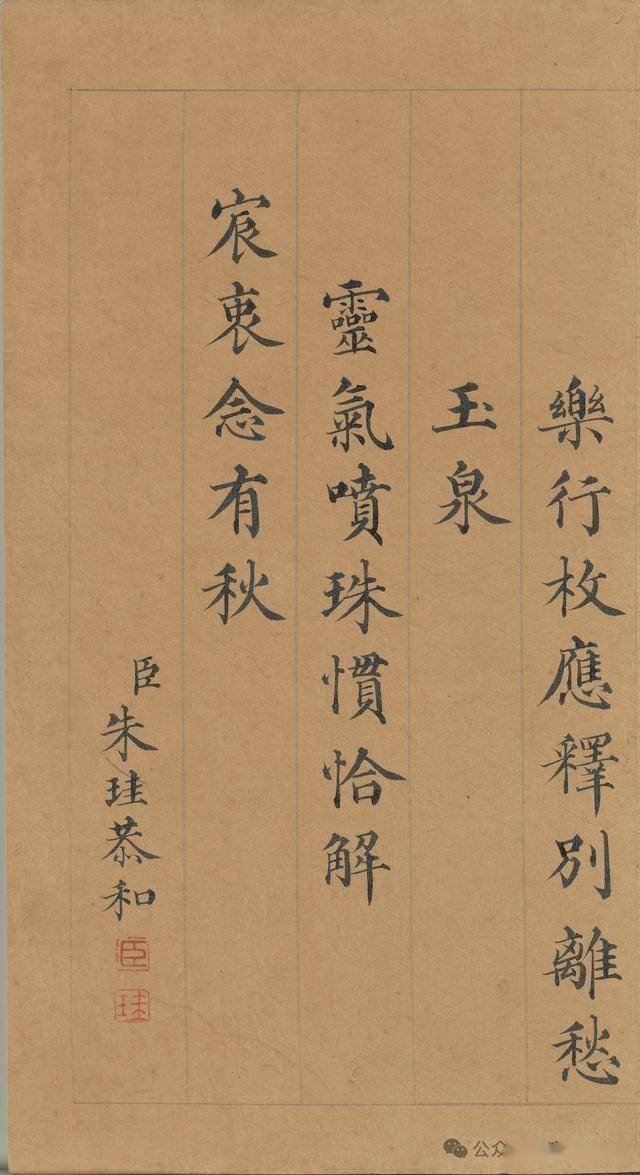 樂行枚應釋別離愁
玉泉
靈氣噴珠慣恰解
宸衷念有秋
臣朱珪恭和
臣
珪
公众